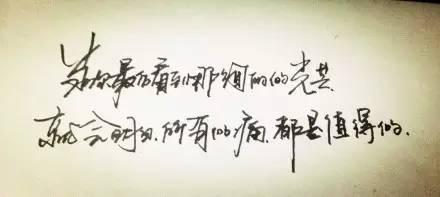 当你最后看到那绚丽的光芒
就会明白,所有的痛,都是值得的.